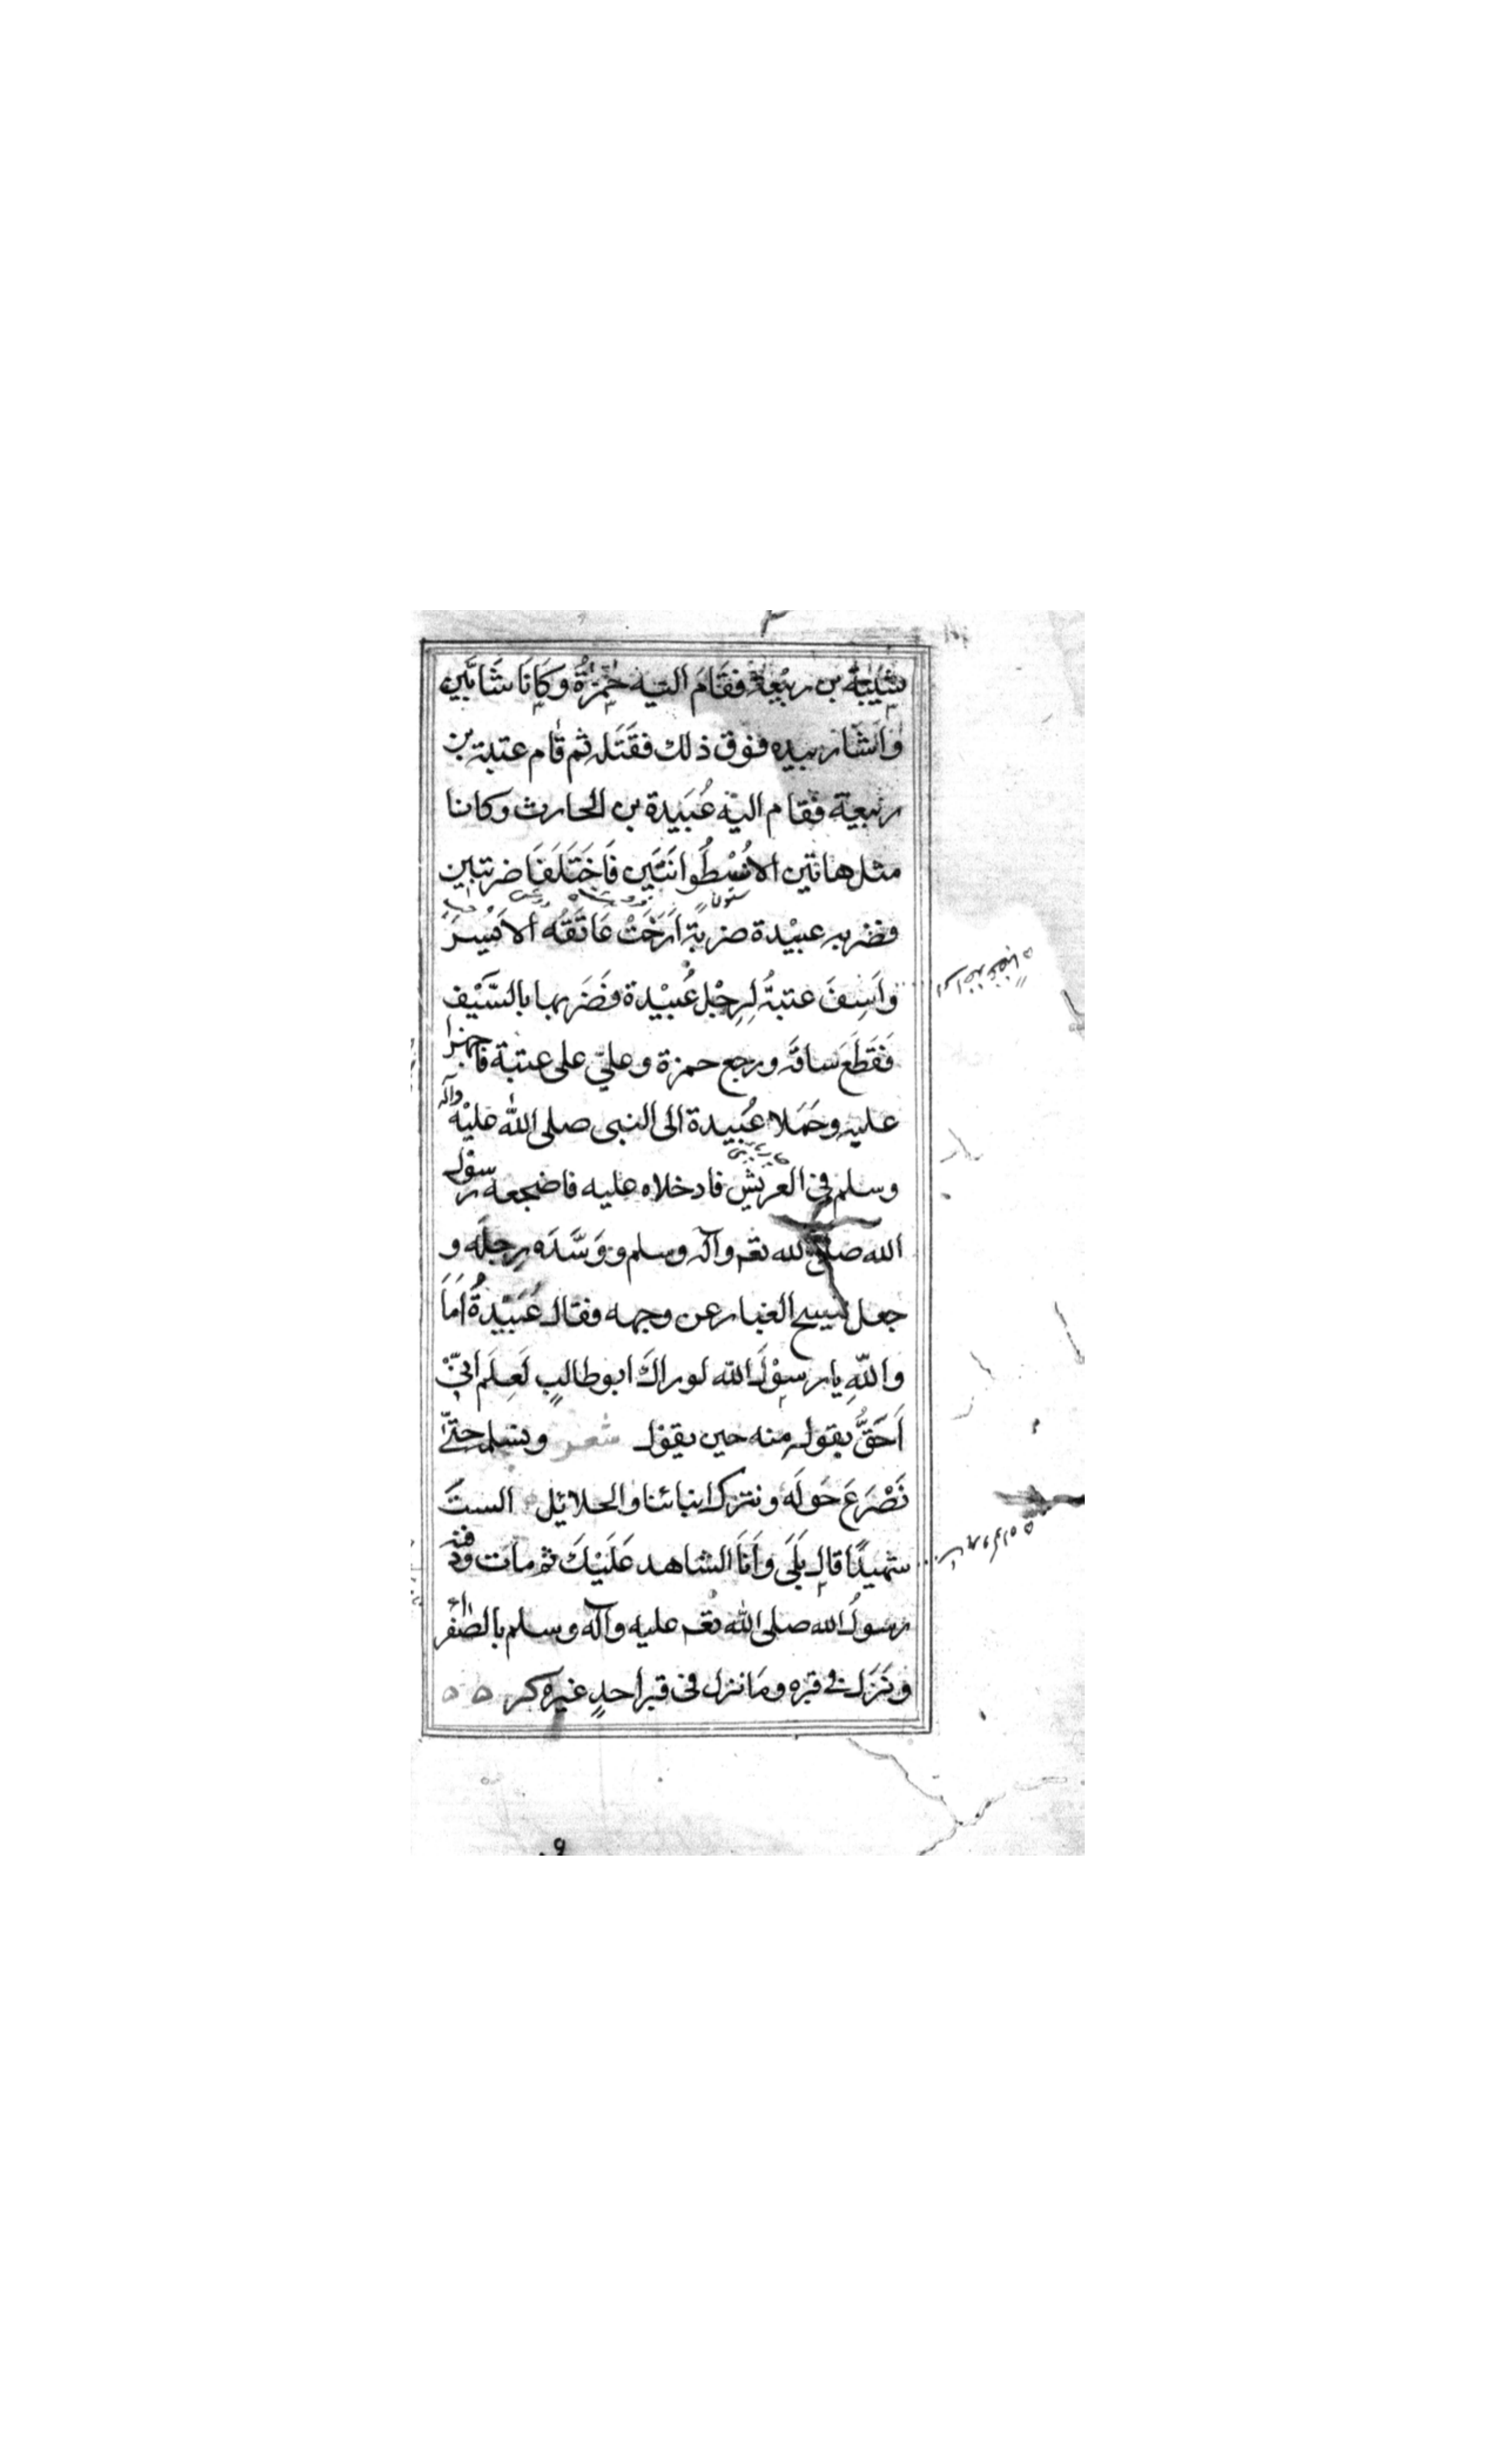 شَيْبَة بن ربيعة فقَامَ اليه حَمْزَةُ وَكَانَا شَابَّين
وَاَشَار بيده فوق ذلك فقَتَله ثم قام عتبة بن
ربيعة فقام اليه عُبَيدة بن الحارث وكانا
مثل هاتين الاُسْطُوانَتَين فَاخْتَلَفَا ضربتين
فضربه عبيْدة ضربَة اَرْخَتْ عَاتقَه الاَيْسرَ
وَاَسِفَ عتبةُ لِرِجْل عُبيْدة فضَرَبها بالسَّيْف
فَقَطَعَ ساقَه ورجع حمزة وعليّ على عتبة فاجهزا
عليه وحَمَلا عُبيدة الى النبى صلى الله عليْه وآله
وسلم فى العريش فادخلاه عليه فاضجعه رسوْل
الله صلى الله تعـ وآله وسلم ووَسَّدَه رِجلَه و
جعل يمسح الغبار عن وجهه فقال عُبَيْدةُ اَمَا
وَاللّهِ يا رسوْلَ الله لوراكَ ابوطالبٍ لَعِلَم انّىْ
اَحَقُّ بقوله منه حين يقول شعر ونسلمه حتّى
نَصْرَعَ حَولَه ونترك ابنائنا والحلائل الستَ
شهيدًا قال بَلَى وَاَنَا الشاهد عَلَيْكَ ثم مات ودفنه
رسولُ الله صلى الله تعـ عليه وآله وسلم بالصَّفراء
ونَزَل فى قبره ومَا نزل فى قبر احدٍ غيره
ستون